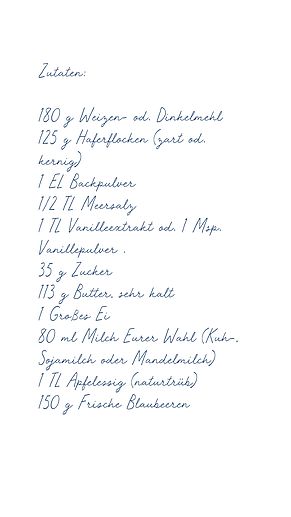 Zutaten:
180 g Weizen- od. Dinkelmehl
125 g Haferflocken (zart od.
kernig)
1 EL Backpulver
1/2 TL Meersalz
1 TL Vanilleextrakt od. 1 Msp.
Vanillepulver .
35 g Zucker
113 g Butter, sehr kalt
1 Großes Ei
80 ml Milch Eurer Wahl (Kuh-,
Sojamilch oder Mandelmilch)
1 TL Apfelessig (naturtrüb)
150 g Frische Blaubeeren